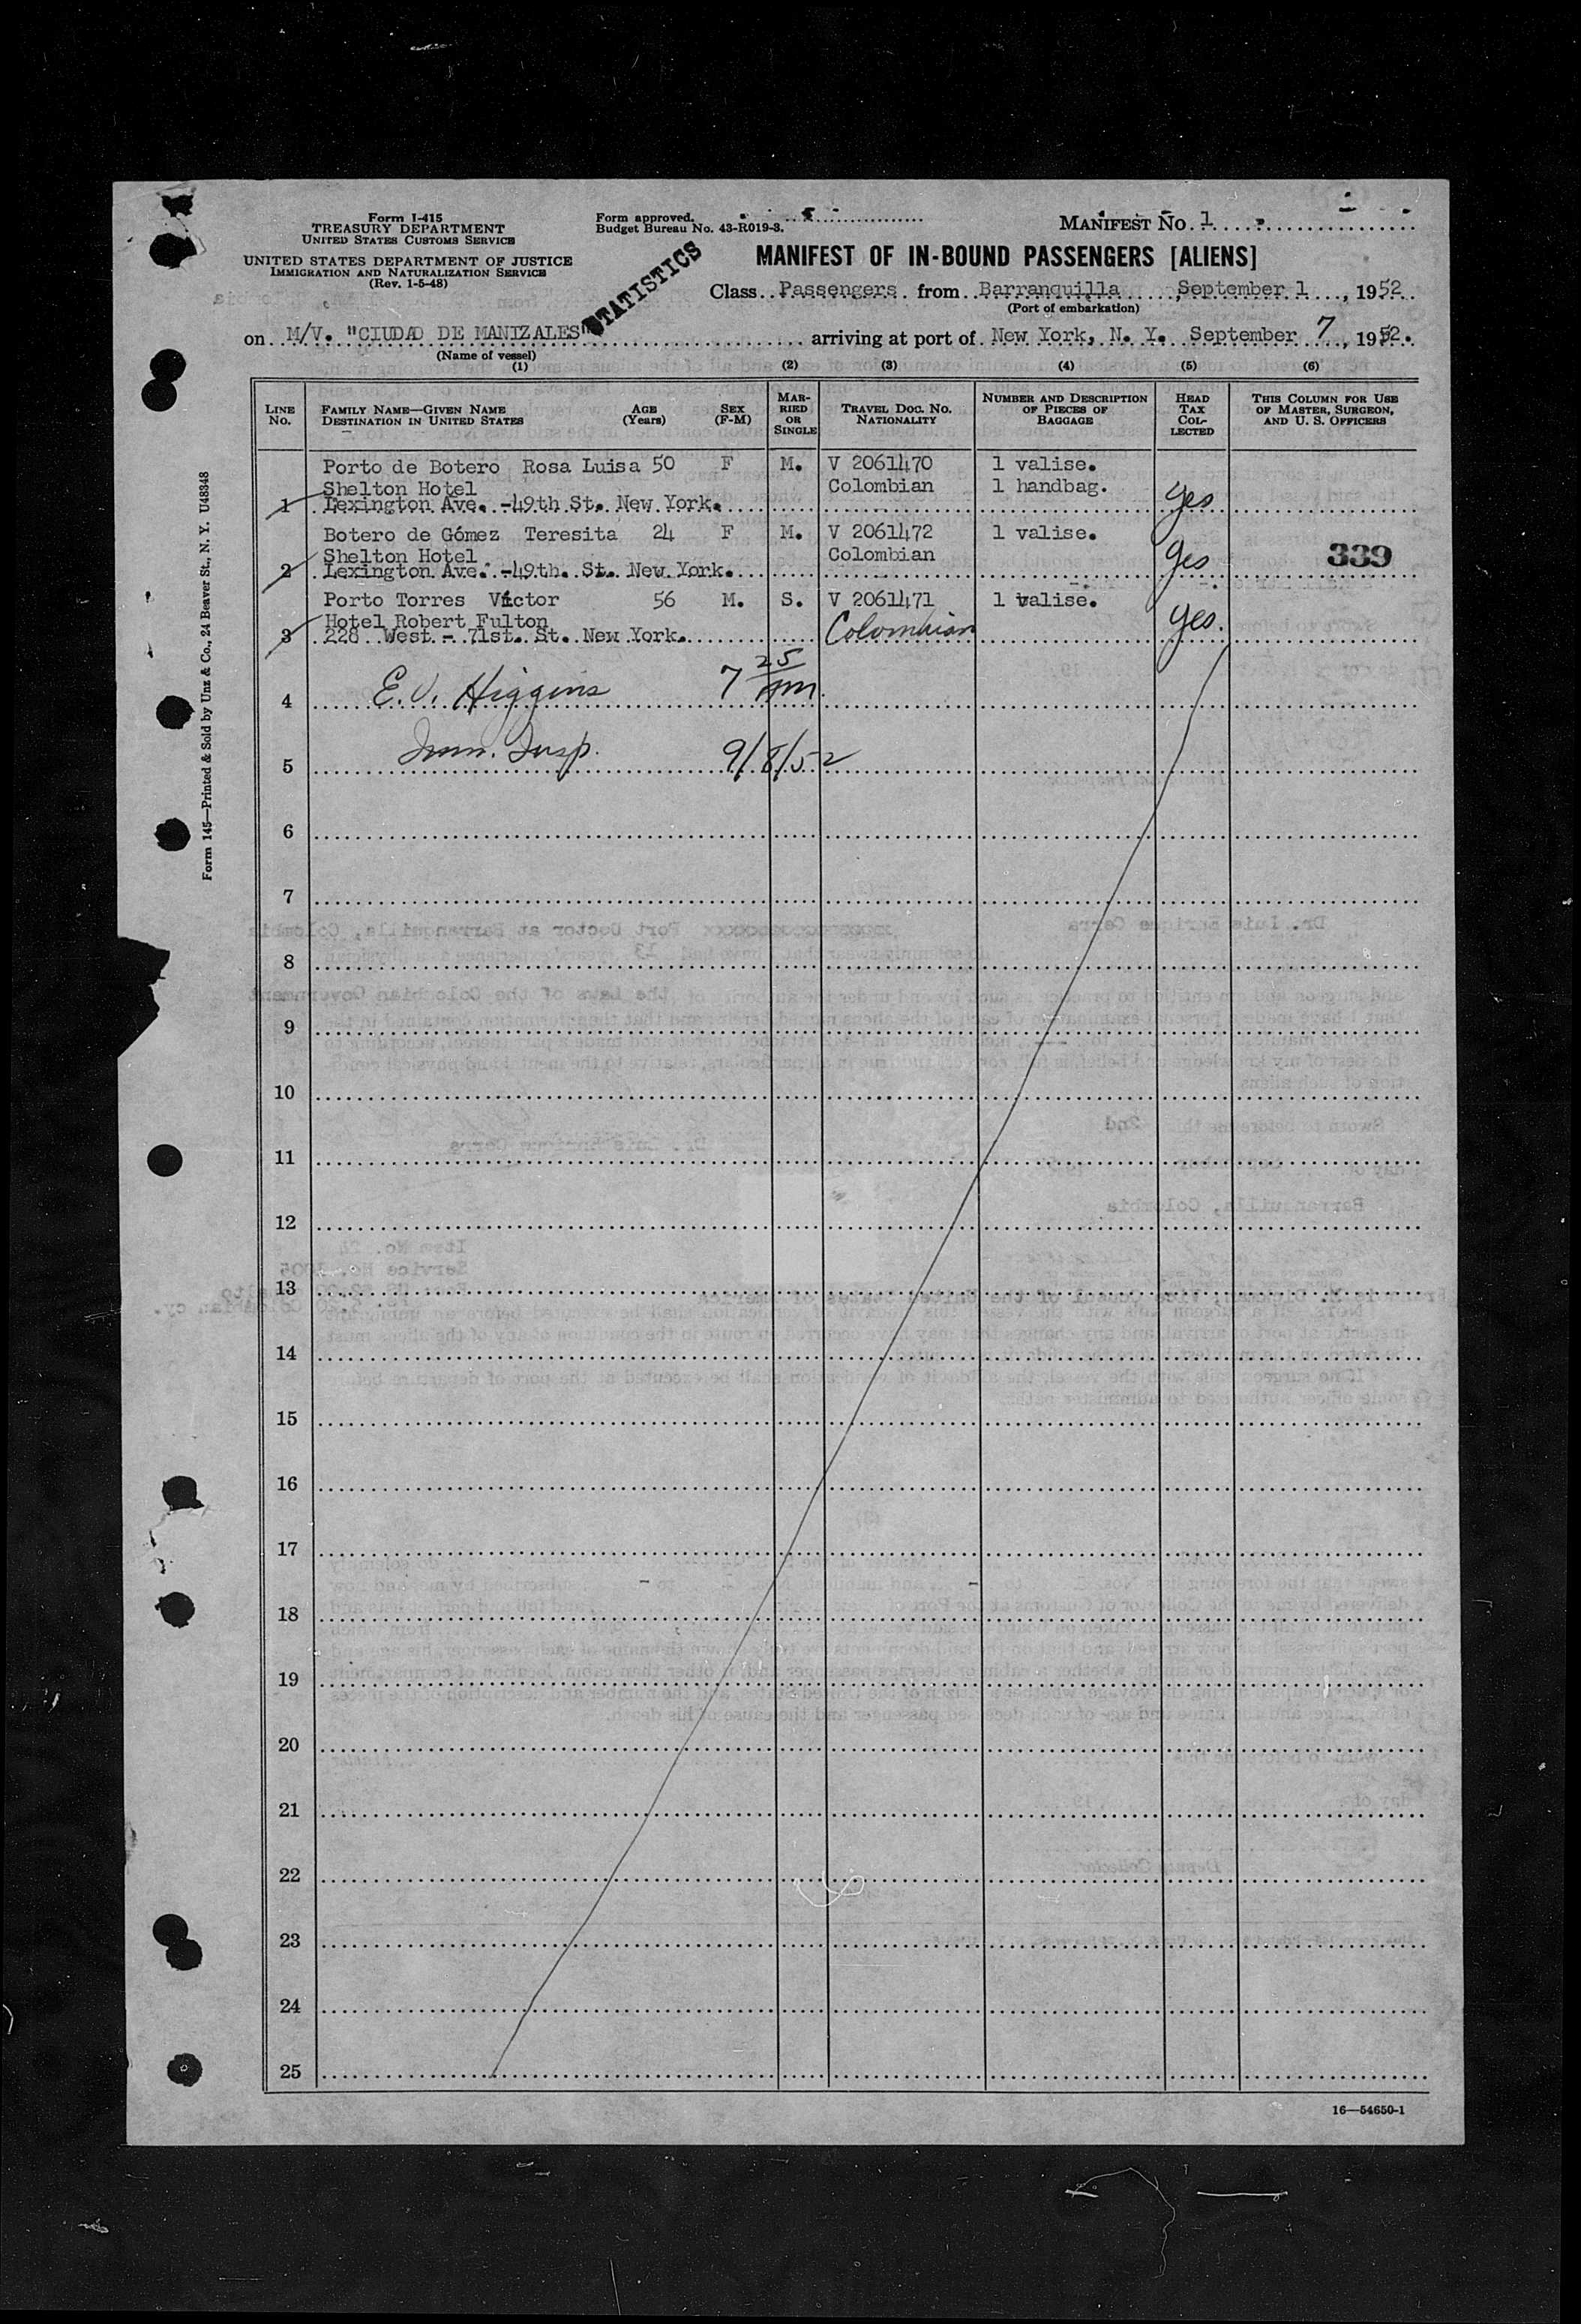 Form I-415
TREASURY DEPARTMENT
UNITED STATES CUSTOMS SERVICE
UNITED STATES DEPARTMENT OF JUSTICE
IMMIGRATION AND NATURALIZATION SERVICE
(Rev. 1-5-48)
Form approved.
Budget Bureau No. 43-R019-3.
STATISTICS
MANIFEST NO. 1
MANIFEST OF IN-BOUND PASSENGERS [ALIENS]
Class Passengers from Barranquilla, September 1, 1952
(Port of embarkation)
on M/V. "CIUDAD DE MANIZALES" arriving at port of New York, N. Y. September 7, 1952.
(Name of vessel)
(1) (2) (3) (4) (5) (6)
LINE NO. FAMILY NAME—GIVEN NAME DESTINATION IN UNITED STATES AGE (Years) SEX (F-M) MARRIED OR SINGLE TRAVEL DOC. NO. NATIONALITY NUMBER AND DESCRIPTION OF PIECES OF BAGGAGE HEAD TAX COLLECTED THIS COLUMN FOR USE OF MASTER, SURGEON, AND U. S. OFFICERS
Porto de Botero Rosa Luisa 50 F M. V 2061470 1 valise.
Shelton Hotel Colombian 1 handbag.
1 Lexington Ave. -49th St. New York. yes
Botero de Gómez Teresita 24 F M. V 2061472 1 valise.
Shelton Hotel Colombian yes 339
2 Lexington Ave. -49th. St. New York.
Porto Torres Victor 56 M. S. V 2061471 1 valise.
Hotel Robert Fulton Colombian yes.
3 228 West - 71st. St. New York.
4 E. V. Higgins 7 25 am.
5 Imm. Insp. 9/8/52
6
7
8
9
10
11
12
13
14
15
16
17
18
19
20
21
22
23
24
25
16—54650-1
Form 145—Printed & Sold by Unz & Co., 24 Beaver St., N. Y. U48348